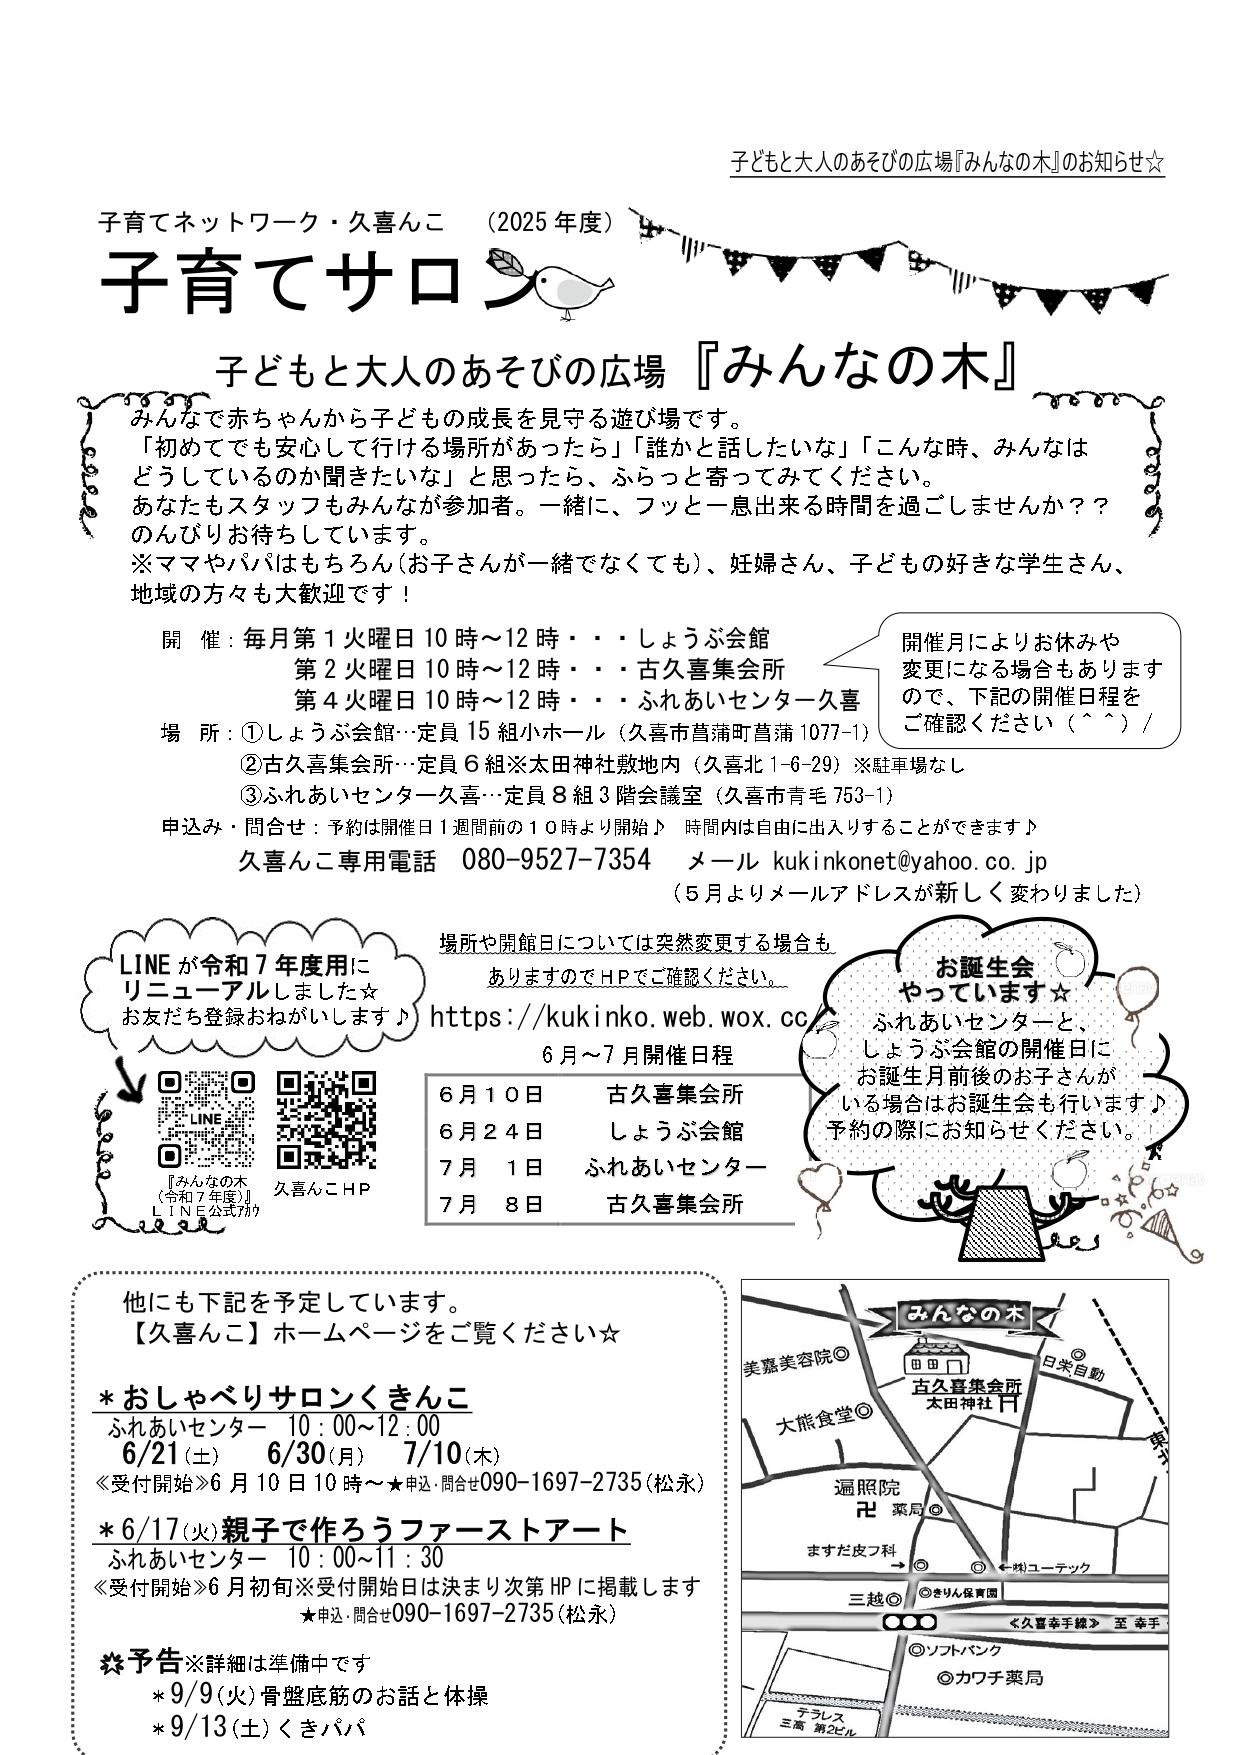 子どもと大人のあそびの広場『みんなの木』のお知らせ☆
子育てネットワーク・久喜んこ　（2025年度）
子育てサロン
子どもと大人のあそびの広場『みんなの木』
みんなで赤ちゃんから子どもの成長を見守る遊び場です。
「初めてでも安心して行ける場所があったら」「誰かと話したいな」「こんな時、みんなは
どうしているのか聞きたいな」と思ったら、ふらっと寄ってみてください。
あなたもスタッフもみんなが参加者。一緒に、フッと一息出来る時間を過ごしませんか？？
のんびりお待ちしています。
※ママやパパはもちろん(お子さんが一緒でなくても)、妊婦さん、子どもの好きな学生さん、
地域の方々も大歓迎です！
開　催：毎月第１火曜日10時～12時・・・しょうぶ会館
第２火曜日10時～12時・・・古久喜集会所
第４火曜日10時～12時・・・ふれあいセンター久喜
開催月によりお休みや
変更になる場合もあります
ので、下記の開催日程を
ご確認ください（＾＾）/
場　所：①しょうぶ会館…定員15組小ホール（久喜市菖蒲町菖蒲1077-1）
②古久喜集会所…定員６組※太田神社敷地内（久喜北1-6-29）※駐車場なし
③ふれあいセンター久喜…定員８組３階会議室（久喜市青毛753-1）
申込み・問合せ：予約は開催日１週間前の１０時より開始♪　時間内は自由に出入りすることができます♪
久喜んこ専用電話　080-9527-7354　メール kukinkonet@yahoo.co.jp
（５月よりメールアドレスが新しく変わりました）
LINEが令和７年度用に
リニューアルしました☆
お友だち登録おねがいします♪
LINE
『みんなの木
（令和７年度）』
ＬＩＮＥ公式ｱｶｳ
久喜んこＨＰ
場所や開館日については突然変更する場合も
ありますのでＨＰでご確認ください。
https://kukinko.web.wox.cc/
６月～７月開催日程
６月１０日　古久喜集会所
６月２４日　しょうぶ会館
７月　１日　ふれあいセンター
７月　８日　古久喜集会所
お誕生会
やっています☆
ふれあいセンターと、
しょうぶ会館の開催日に
お誕生月前後のお子さんが
いる場合はお誕生会も行います♪
予約の際にお知らせください。
他にも下記を予定しています。
【久喜んこ】ホームページをご覧ください☆
＊おしゃべりサロンくきんこ
ふれあいセンター　10：00～12：00
6/21(土)　6/30(月)　7/10(木)
≪受付開始≫6月10日10時～★申込・問合せ090-1697-2735(松永)
＊6/17(火)親子で作ろうファーストアート
ふれあいセンター　10：00～11：30
≪受付開始≫6月初旬※受付開始日は決まり次第HPに掲載します
★申込・問合せ090-1697-2735(松永)
予告※詳細は準備中です
＊9/9(火)骨盤底筋のお話と体操
＊9/13(土)くきパパ
みんなの木
美嘉美容院◎
古久喜集会所
太田神社
◎
日栄自動
大熊食堂◎
東北
遍照院
卍　薬局◎
ますだ皮フ科
→◎　◎←㈱ユーテック
三越◎　◎きりん保育園
≪久喜幸手線≫　至 幸手
◎ソフトバンク
◎カワチ薬局
テラレス
三高 第2ビル